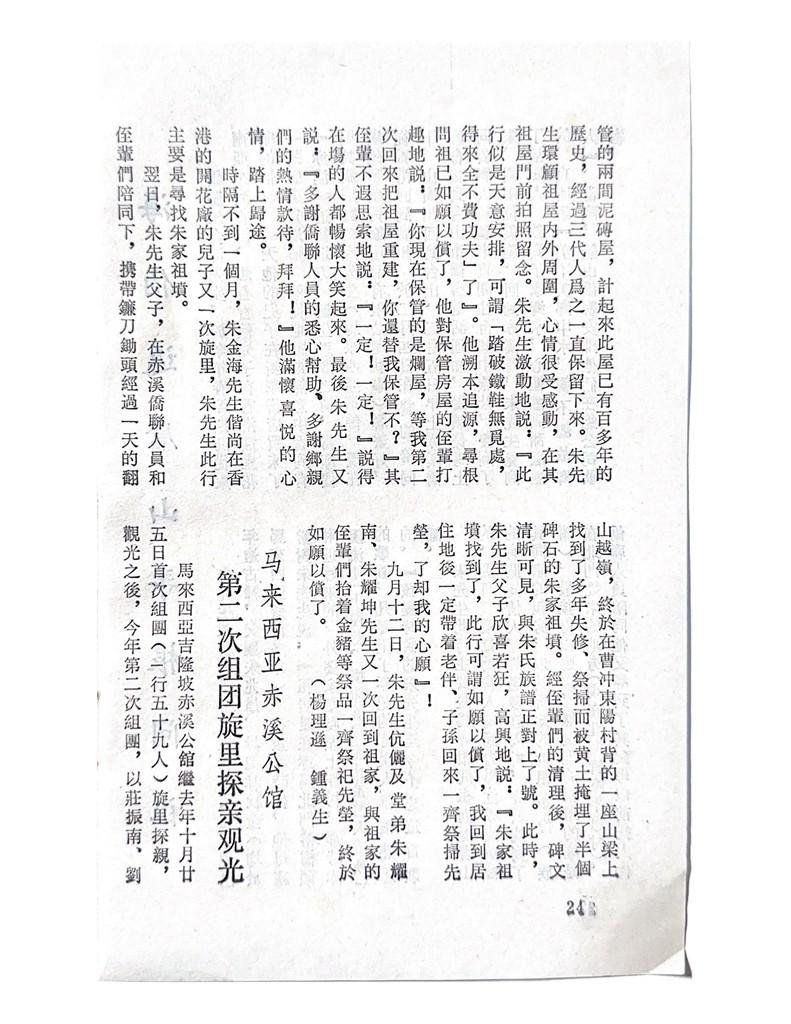 管的兩間泥磚屋，計起來此屋已有百多年的
歷史，經過三代人爲之一直保留下來。朱先
生環顧祖屋内外周圍，心情很受感動，在其
祖屋門前拍照留念。朱先生激動地説：『此
行似是天意安排，可謂「踏破鐵鞋無覓處，
得來全不費功夫」了』。他溯本追源，尋根
問祖已如願以償了，他對保管房屋的侄輩打
趣地説：『你現在保管的是爛屋，等我第二
次回來把祖屋重建，你還替我保管不？』其
侄輩不遐思索地説：『一定！一定！』説得
在場的人都暢懷大笑起來。最後朱先生又
説：『多謝僑聯人員的悉心幫助、多謝鄉親
們的熱情款待，拜拜！』他滿懷喜悦的心
情，踏上歸途。
時隔不到一個月，朱金海先生偕尚在香
港的開花廠的兒子又一次旋里，朱先生此行
主要是尋找朱家祖墳。
翌日，朱先生父子，在赤溪僑聯人員和
侄輩們陪同下，携帶鐮刀鋤頭經過一天的翻
山越嶺，終於在曹冲東陽村背的一座山梁上
找到了多年失修、祭掃而被黄土掩埋了半個
碑石的朱家祖墳。經侄輩們的清理後，碑文
清晰可見，與朱氏族譜正對上了號。此時，
朱先生父子欣喜若狂，高興地説：『朱家祖
墳找到了，此行可謂如願以償了，我回到居
住地後一定帶着老伴、子孫回來一齊祭掃先
塋，了却我的心願』！
九月十二日，朱先生伉儷及堂弟朱耀
南、朱耀坤先生又一次回到祖家，與祖家的
侄輩們抬着金豬等祭品一齊祭祀先塋，終於
如願以償了。
（楊理遜　鍾義生）
马来西亚赤溪公馆
第二次组团旋里探亲观光
馬來西亞吉隆坡赤溪公館繼去年十月廿
五日首次組團（一行五十九人）旋里探親，
觀光之後，今年第二次組團，以莊振南、劉
24